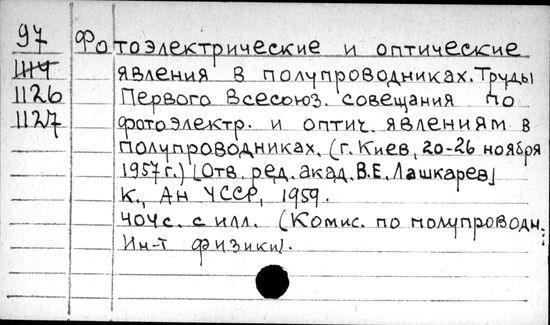 97 Фотоэлектрические и оптические
1114 явления в полупроводниках. Труды
1126 Первого Всесоюз. совещания по
1127 фотоэлектр. и оптич. явлениям в
полупроводниках. (г. Киев, 20-26 ноября
1957 г.) [Отв. ред. акад. В.Е. Лашкарев]
К., АН УССР, 1959.
404 с. с илл. (Комис. по полупроводн.
Ин-т физики).